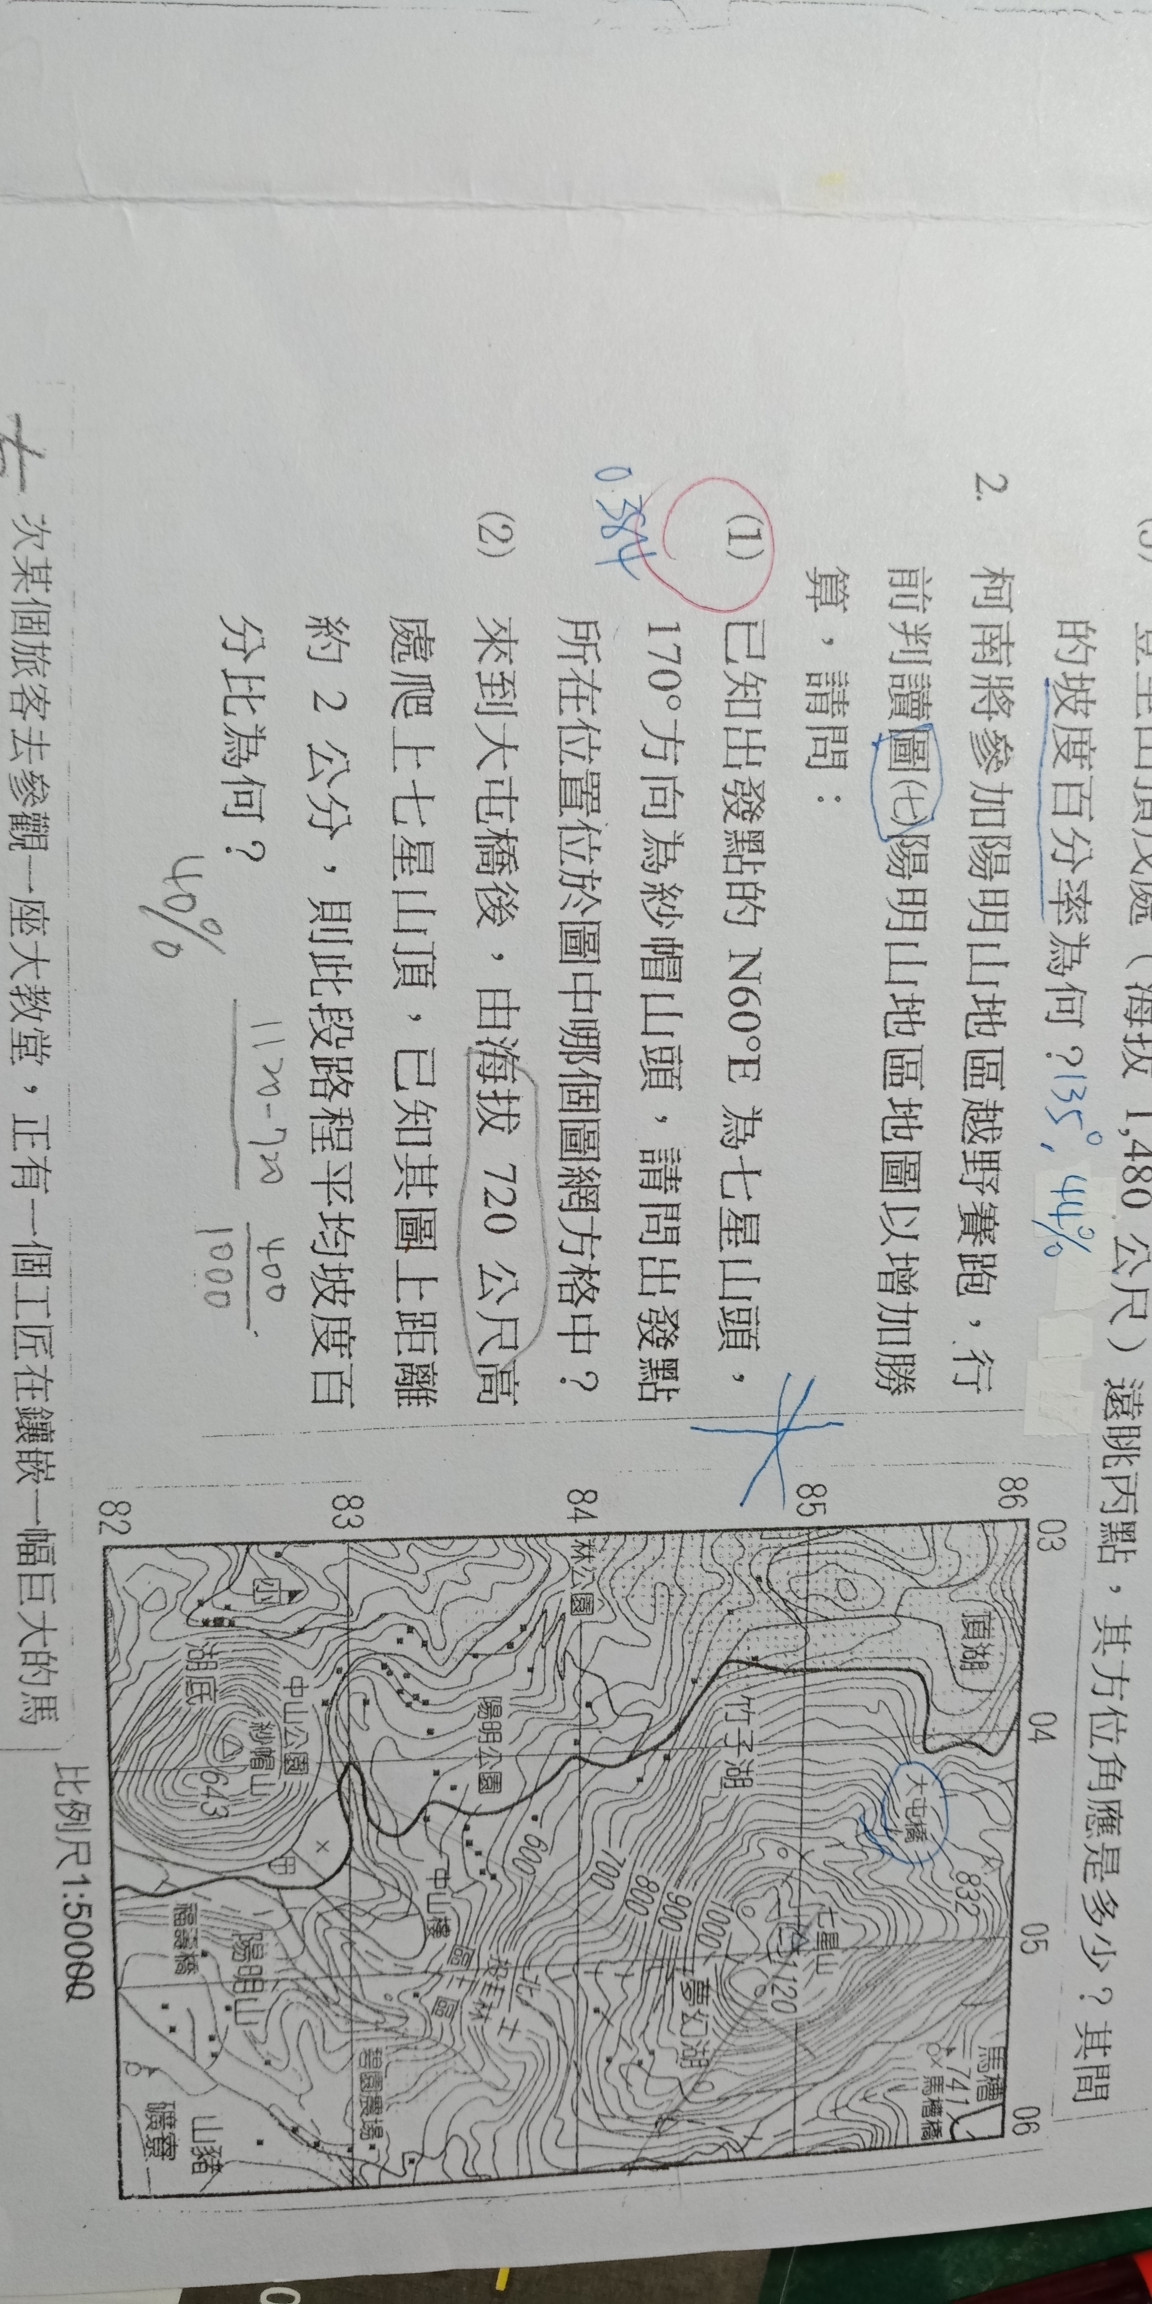 1,480 公尺）遠眺丙點，其方位角應是多少？其間
的坡度百分率為何？135°, 44%
2. 柯南將參加陽明山地區越野賽跑，行
前判讀圖(七)陽明山地區地圖以增加勝
算，請問：
(1) 已知出發點的 N60°E 為七星山頭，
170°方向為紗帽山頭，請問出發點
0.384
所在位置位於圖中哪個圖網方格中？
(2) 來到大屯橋後，由海拔 720 公尺高
處爬上七星山頂，已知其圖上距離
約 2 公分，則此段路程平均坡度百
分比為何？
40%
1120-720
400
1000
次某個旅客去參觀一座大教堂，正有一個工匠在鑲嵌一幅巨大的馬
03
04
05
06
86
85
84
83
82
頂湖
大屯橋
832
馬槽
741
馬槽橋
竹子湖
七星山
1120
夢幻湖
1000
900
800
700
600
林公園
陽明公園
中山樓
中山公園
紗帽山
643
湖底
甲
福壽橋
陽明山
碧園農場
山豬
礦寮
比例尺1:50000